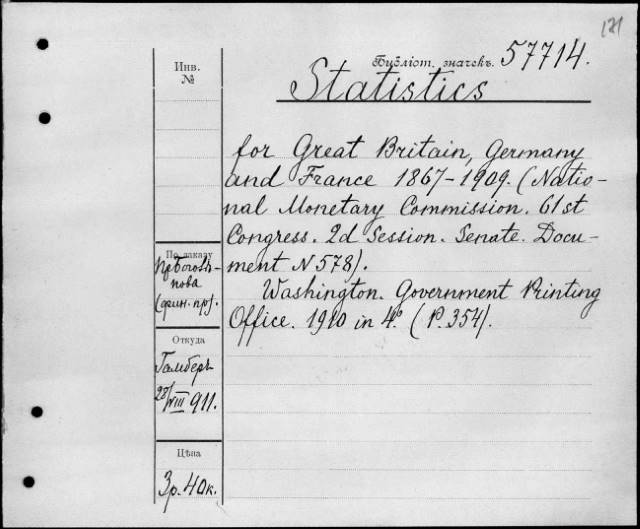 121
Инв.
№
Библіот. значекъ. 57714.
Statistics
for Great Britain, Germany
and France 1867-1909. (Natio-
nal Monetary Commission. 61st
Congress. 2d Session. Senate. Docu-
ment N 578).
Washington. Government Printing
Office. 1910 in 4º. (P. 354).
По заказу
(фин. пр).
Откуда
Гамберъ
28/VIII 911.
Цѣна
3р. 40к.